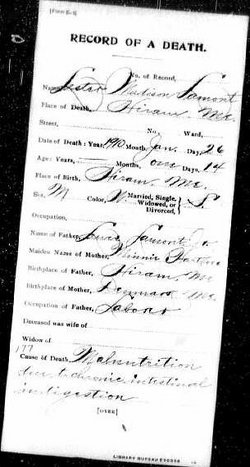 [Form B-1]
RECORD OF A DEATH.
No. of Record,
Name, Lester Madison Lamont
Place of Death, Hiram, Me.
Street, No. Ward,
Date of Death: Year, 1910 Month, Jan. Day, 26
Age: Years, — Months, one Days, 14
Place of Birth, Hiram, Me.
Sex, M Color, W Married, Single, Widowed, or Divorced, } S
Occupation,
Name of Father, Lamont
Maiden Name of Mother, Minnie
Birthplace of Father, Hiram, Me
Birthplace of Mother, Denmark Me.
Occupation of Father, Labor
Deceased was wife of
Widow of
177
Cause of Death, Malnutrition
due to chronic intestinal
indigestion
[OVER]
LIBRARY BUREAU